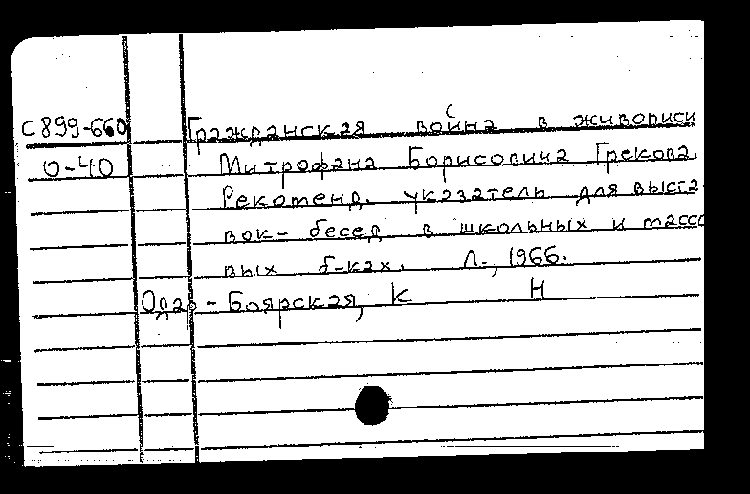 С899-660 Гражданская война в живописи
О-40 Митрофана Борисовича Грекова.
Рекоменд. указатель для выста-
вок-бесед в школьных и массо
вых б-ках. Л., 1966.
Одар-Боярская, К Н